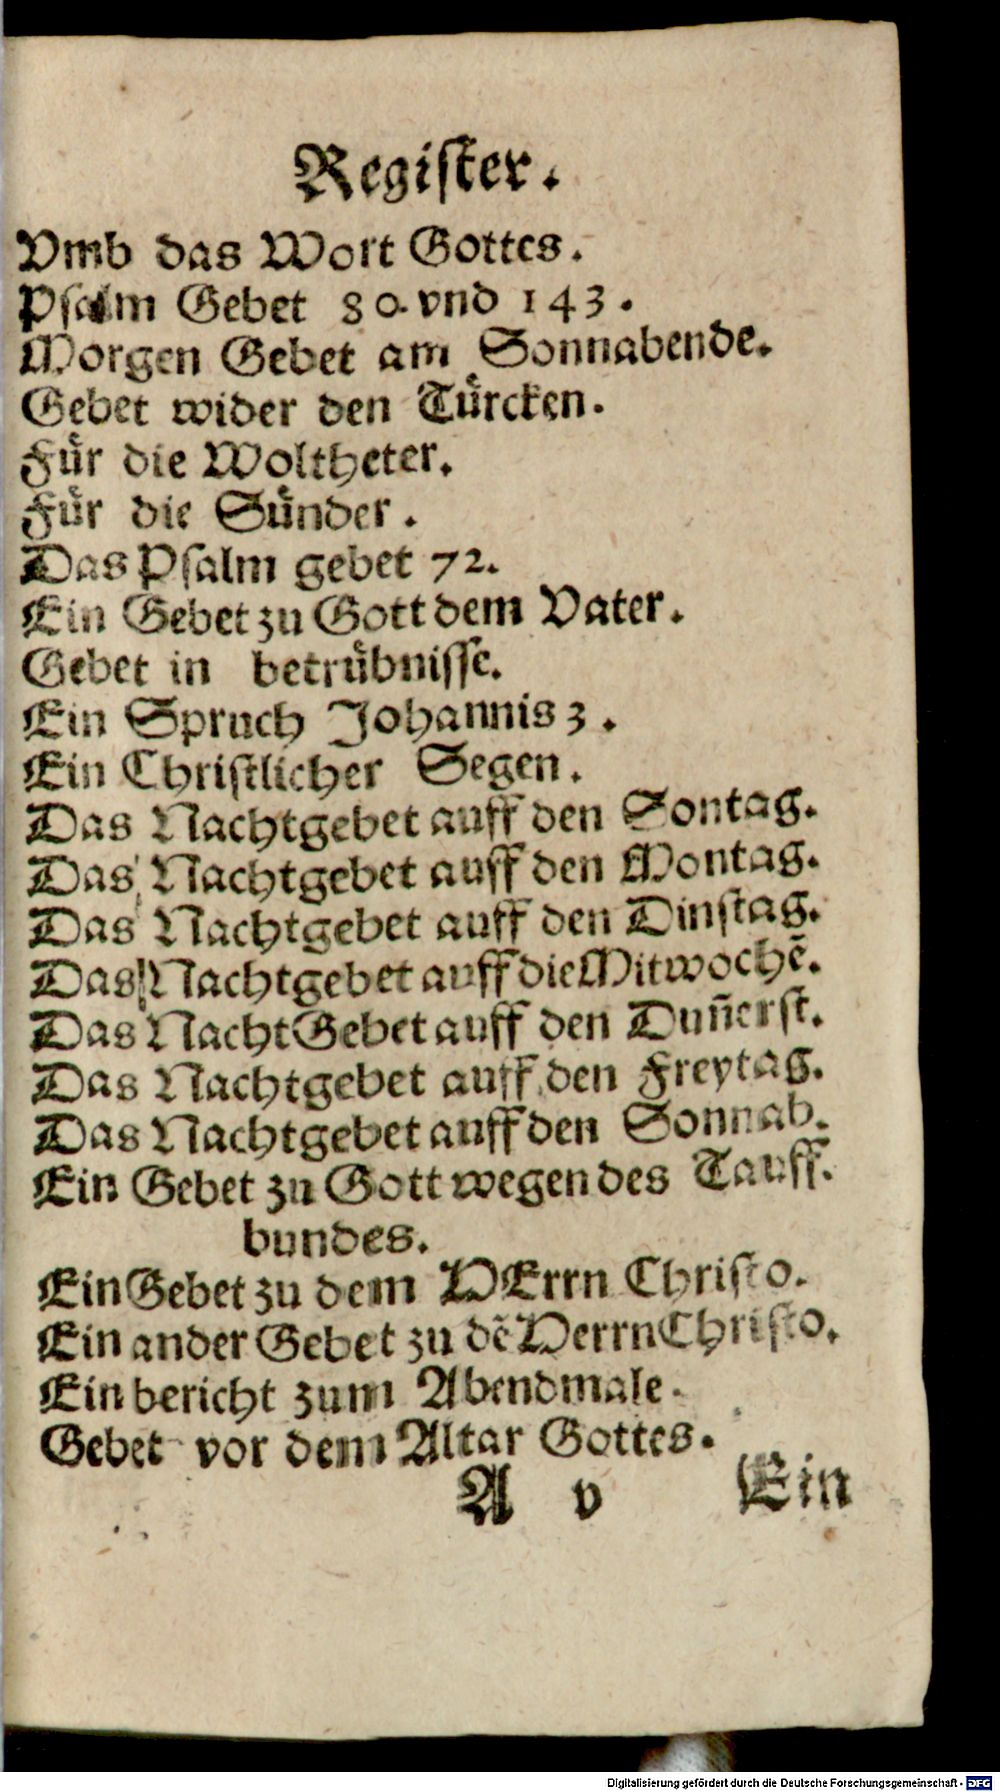 Register.
Vmb das Wort Gottes.
Psalm Gebet 80. vnd 143.
Morgen Gebet am Sonnabende.
Gebet wider den Tuͤrcken.
Fuͤr die Woltheter.
Fuͤr die Suͤnder.
Das Psalm gebet 72.
Ein Gebet zu Gott dem Vater.
Gebet in betruͤbnisse.
Ein Spruch Johannis 3.
Ein Christlicher Segen.
Das Nachtgebet auff den Sontag.
Das Nachtgebet auff den Montag.
Das Nachtgebet auff den Dinstag.
Das Nachtgebet auff die Mitwochẽ.
Das Nacht Gebet auff den Dun̄erst.
Das Nachtgebet auff den Freytag.
Das Nachtgebet auff den Sonnab.
Ein Gebet zu Gott wegen des Tauff.
bundes.
Ein Gebet zu dem HErrn Christo.
Ein ander Gebet zu dẽ Herrn Christo.
Ein bericht zum Abendmale.
Gebet vor dem Altar Gottes.
A v Ein
Digitalisierung gefördert durch die Deutsche Forschungsgemeinschaft - DFG